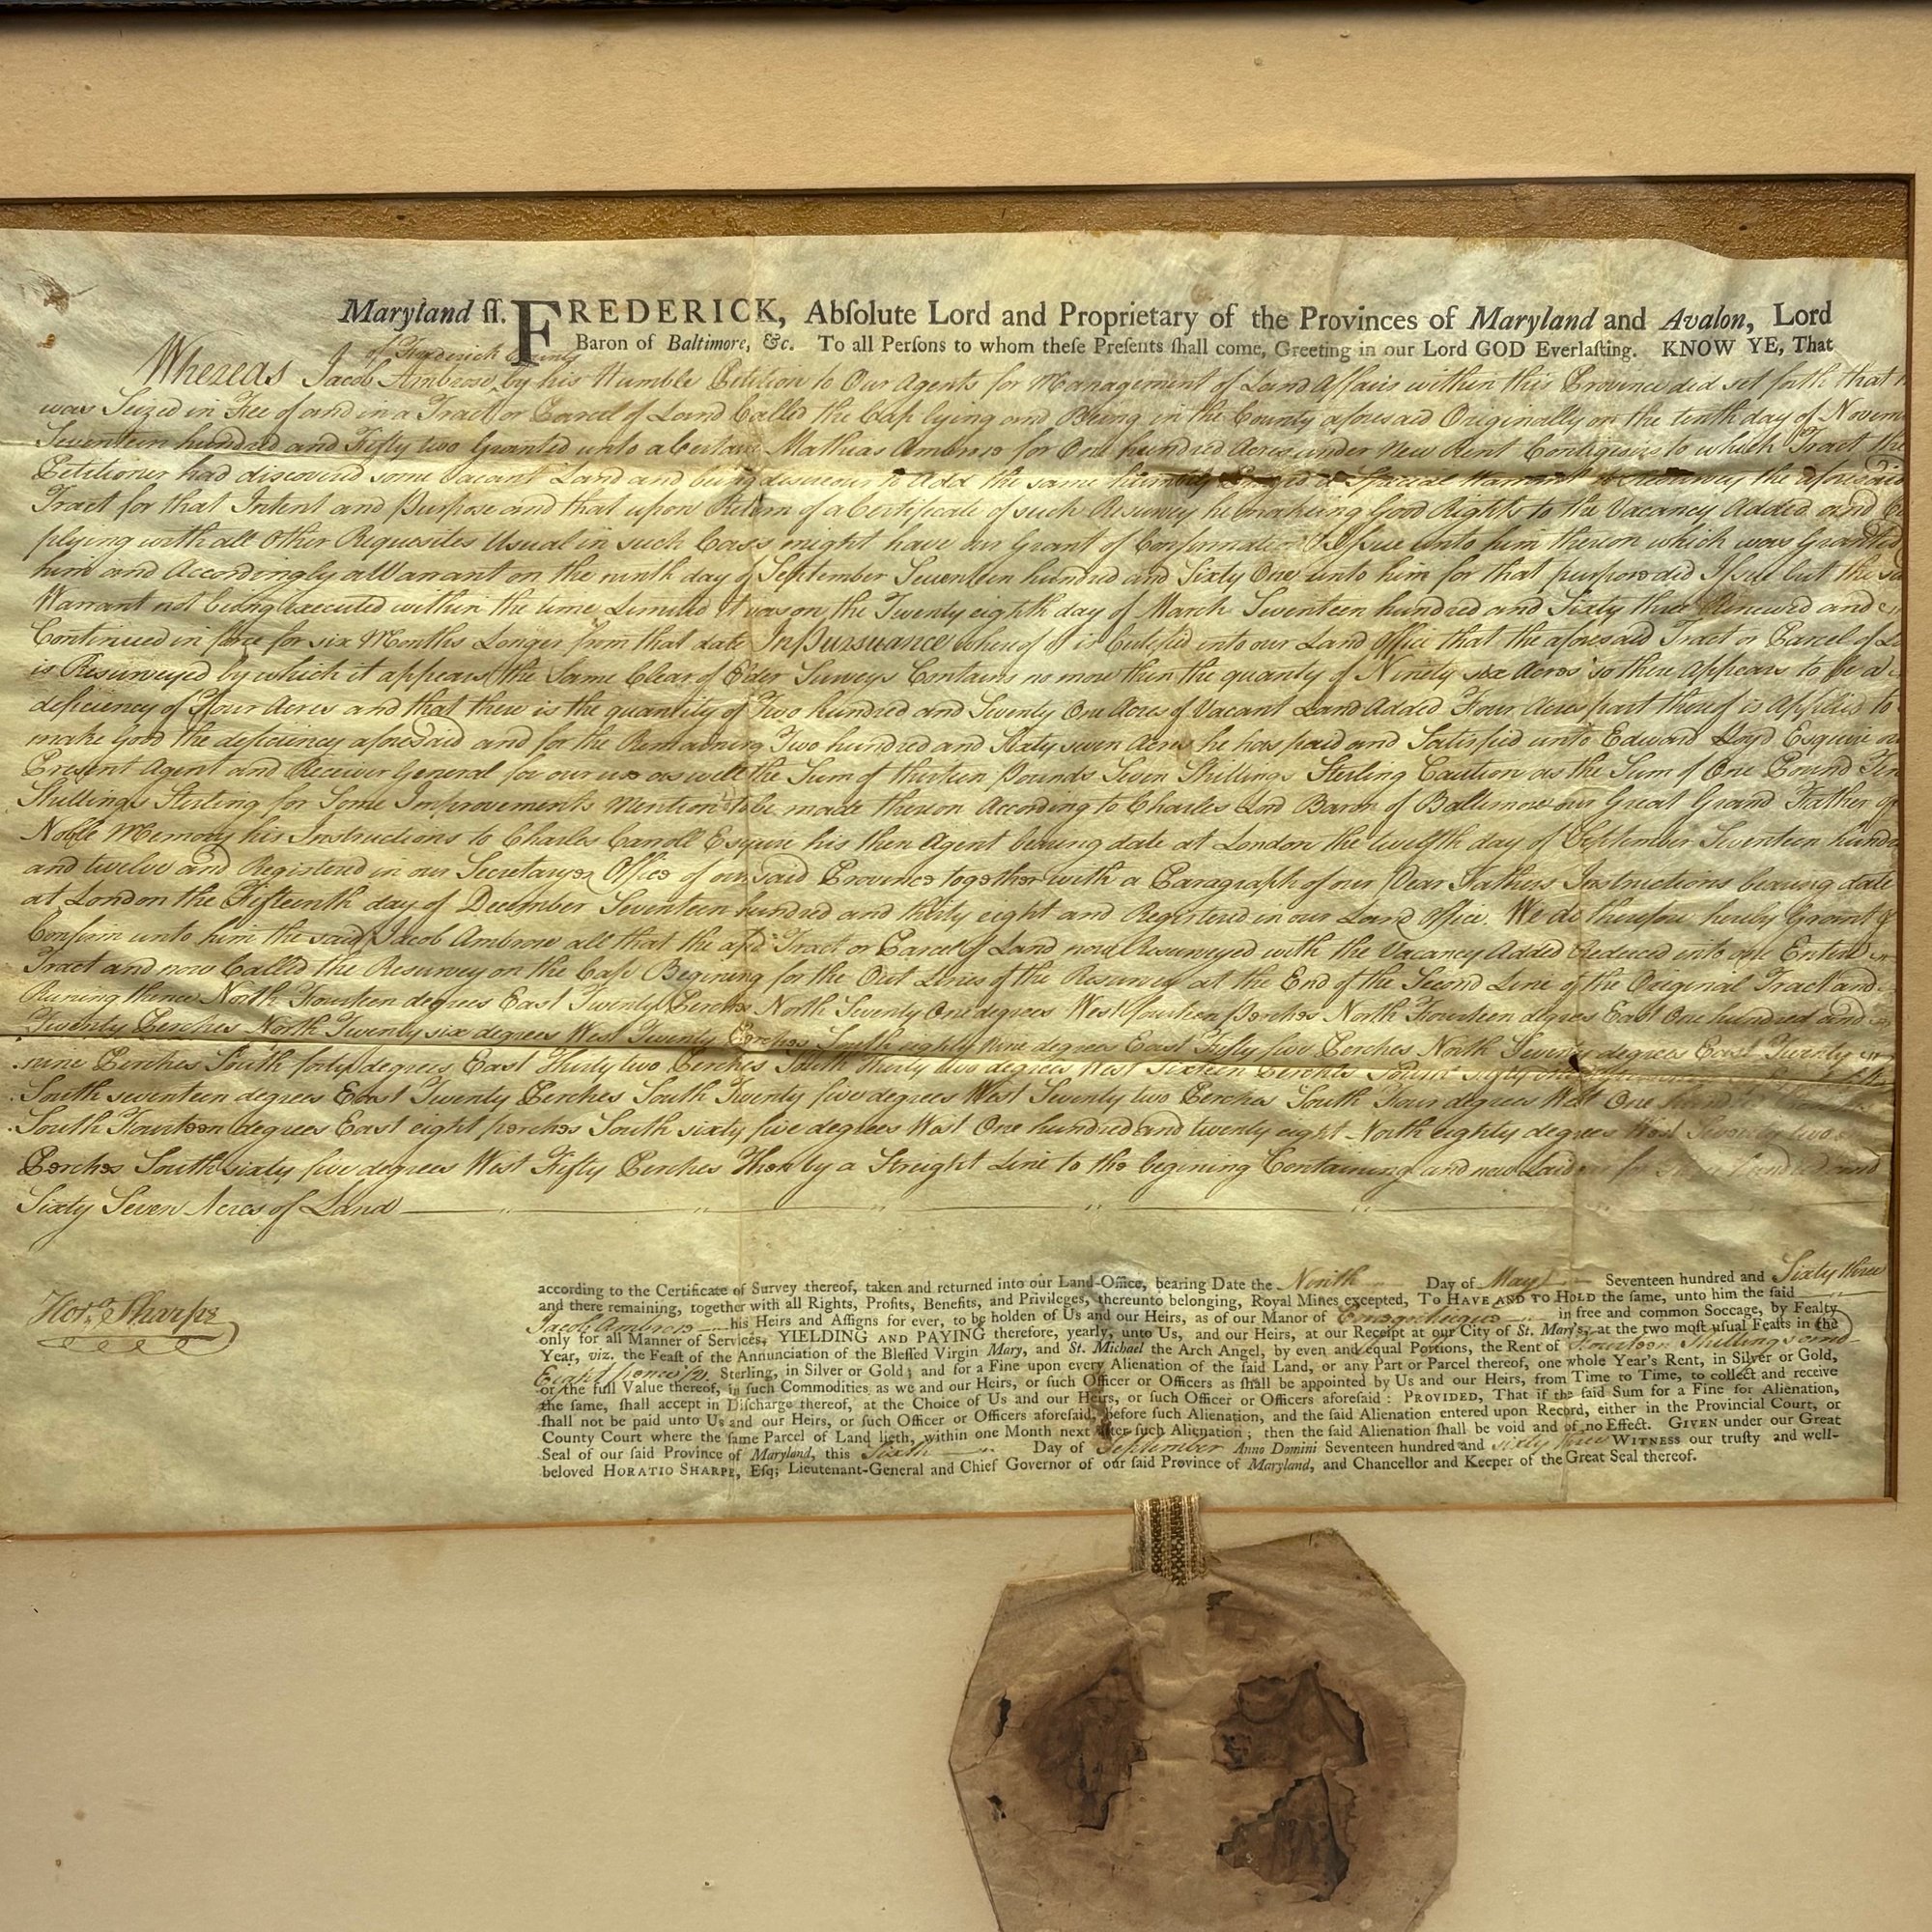 Maryland ſſ. FREDERICK, Abſolute Lord and Proprietary of the Provinces of Maryland and Avalon, Lord
Baron of Baltimore, &c. To all Perſons to whom theſe Preſents ſhall come, Greeting in our Lord GOD Everlaſting. KNOW YE, That
of Frederick County
Whereas Jacob Ambrose by his Humble Petition to Our Agents for Management of Land Affairs within this Province did set forth that
was Seized in Fee of and in a Tract or Parcel of Land Called the lying and Being in the County aforesaid Originally on the tenth day of Novem
Seventeen hundred and Fifty two Granted unto a Certain Mathias Ambrose for One hundred Acres under New Rent Contigious to which Tract the
Petitioner had discovered some Vacant Land and being desireous to Add the same humbly a Special Warrant to Resurvey the aforesaid
Tract for that Intent and Purpose and that upon Return of a Certificate of such Resurvey he making Good Rights to the Vacancy Added and
plying with all Other Requisites Usual in such Cases might have our Grant of Confirmation Issue unto him thereon which was Granted
him and Accordingly a Warrant on the ninth day of September Seventeen hundred and Sixty One unto him for that purpose did Issue but the
Warrant not being executed within the time Limited it was on the Twenty eighth day of March Seventeen hundred and Sixty three Renewed and
Continued in force for six Months Longer from that date In Pursuance whereof it is Certified into our Land Office that the aforesaid Tract or Parcel of
is Resurveyed by which it appears the Same Clear of Elder Surveys Contains no more then the quantity of Ninety six Acres so there Appears to be a
deficiency of Four Acres and that there is the quantity of Two hundred and Seventy One Acres of Vacant Land Added Four Acres part thereof is Applied to
make Good the deficiency aforesaid and for the Remaining Two hundred and Sixty seven Acres he has paid and Satisfied unto Edward Lloyd Esquire
Present Agent and Receiver General for our use as well the Sum of thirteen Pounds Seven Shillings Sterling Caution as the Sum of One Pound Ten
Shillings Sterling for Some Improvements Mention'd to be made thereon According to Charles Lord Baron of Baltimore our Great Grand Father of
Noble Memory his Instructions to Charles Carroll Esquire his then Agent bearing date at London the twelfth day of September Seventeen hund
and twelve and Registered in our Secretarys Office of our said Province together with a Paragraph of our Dear Fathers Instructions bearing date
at London the Fifteenth day of December Seventeen hundred and thirty eight and Registered in our Land Office. We do therefore hereby Grant &
Confirm unto him the said Jacob Ambrose all that the afsd Tract or Parcel of Land now Resurveyed with the Vacancy Added Reduced into one Entire
Tract and now Called the Resurvey on the Begining for the Out Lines of the Resurvey at the End of the Second Line of the Original Tract and
Runing thence North Fourteen degrees East Twenty Perches North Seventy One degrees West fourteen Perches North Fourteen degrees East One hundred and
Twenty Perches North Twenty six degrees West Twenty Perches South eighty nine degrees East Fifty five Perches North Seventy degrees East Twenty
nine Perches South forty degrees East Thirty two Perches South Thirty two degrees West Sixteen Perches South
South seventeen degrees East Twenty Perches South Twenty five degrees West Seventy two Perches South Four degrees West One
South Fourteen degrees East eight perches South sixty five degrees West One hundred and twenty eight North eighty degrees West Seventy two
Perches South sixty five degrees West Fifty Perches Then by a Streight Line to the begining Containing and now Laid hundred and
Sixty Seven Acres of Land
according to the Certificate of Survey thereof, taken and returned into our Land-Office, bearing Date the Ninth Day of May Seventeen hundred and Sixty three
and there remaining, together with all Rights, Profits, Benefits, and Privileges, thereunto belonging, Royal Mines excepted, TO HAVE AND TO HOLD the same, unto him the said
Jacob Ambrose his Heirs and Aſſigns for ever, to be holden of Us and our Heirs, as of our Manor of in free and common Soccage, by Fealty
only for all Manner of Services, YIELDING AND PAYING therefore, yearly, unto Us, and our Heirs, at our Receipt at our City of St. Mary's, at the two moſt uſual Feaſts in the
Year, viz. the Feaſt of the Annunciation of the Bleſſed Virgin Mary, and St. Michael the Arch Angel, by even and equal Portions, the Rent of Fourteen Shillings and
Eight pence ½ Sterling, in Silver or Gold; and for a Fine upon every Alienation of the ſaid Land, or any Part or Parcel thereof, one whole Year's Rent, in Silver or Gold,
or the full Value thereof, in ſuch Commodities as we and our Heirs, or ſuch Officer or Officers as ſhall be appointed by Us and our Heirs, from Time to Time, to collect and receive
the ſame, ſhall accept in Diſcharge thereof, at the Choice of Us and our Heirs, or ſuch Officer or Officers aforeſaid: PROVIDED, That if the ſaid Sum for a Fine for Alienation,
ſhall not be paid unto Us and our Heirs, or ſuch Officer or Officers aforeſaid, before ſuch Alienation, and the ſaid Alienation entered upon Record, either in the Provincial Court, or
County Court where the ſame Parcel of Land lieth, within one Month next after ſuch Alienation; then the ſaid Alienation ſhall be void and of no Effect. GIVEN under our Great
Seal of our ſaid Province of Maryland, this Sixth Day of September Anno Domini Seventeen hundred and sixty three WITNESS our truſty and well-
beloved HORATIO SHARPE, Eſq; Lieutenant-General and Chief Governor of our ſaid Province of Maryland, and Chancellor and Keeper of the Great Seal thereof.
Hor.º Sharpe